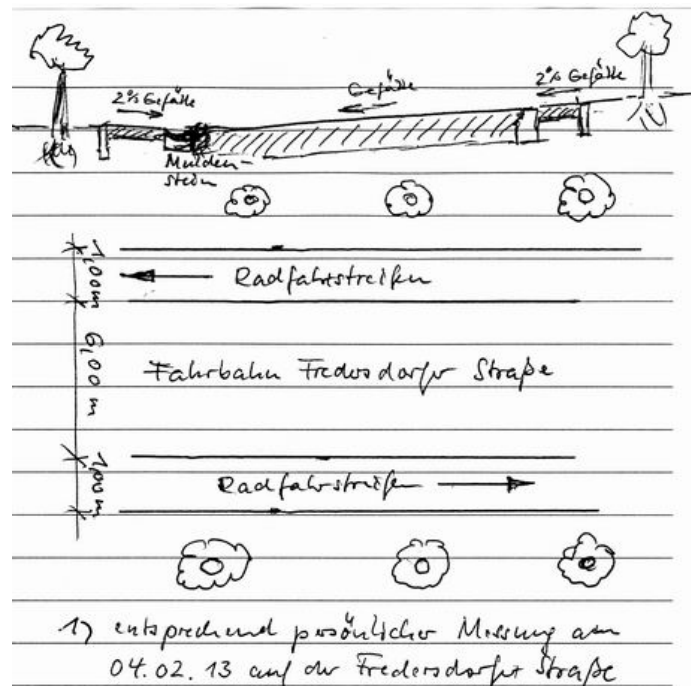 2% Gefälle
Gefälle
2% Gefälle
Mulden-
stein
1,00 m
Radfahrstreifen
6,00 m
Fahrbahn Fredersdorfer Straße
1,00 m
Radfahrstreifen
1) entsprechend persönlicher Messung am
04.02.13 auf der Fredersdorfer Straße